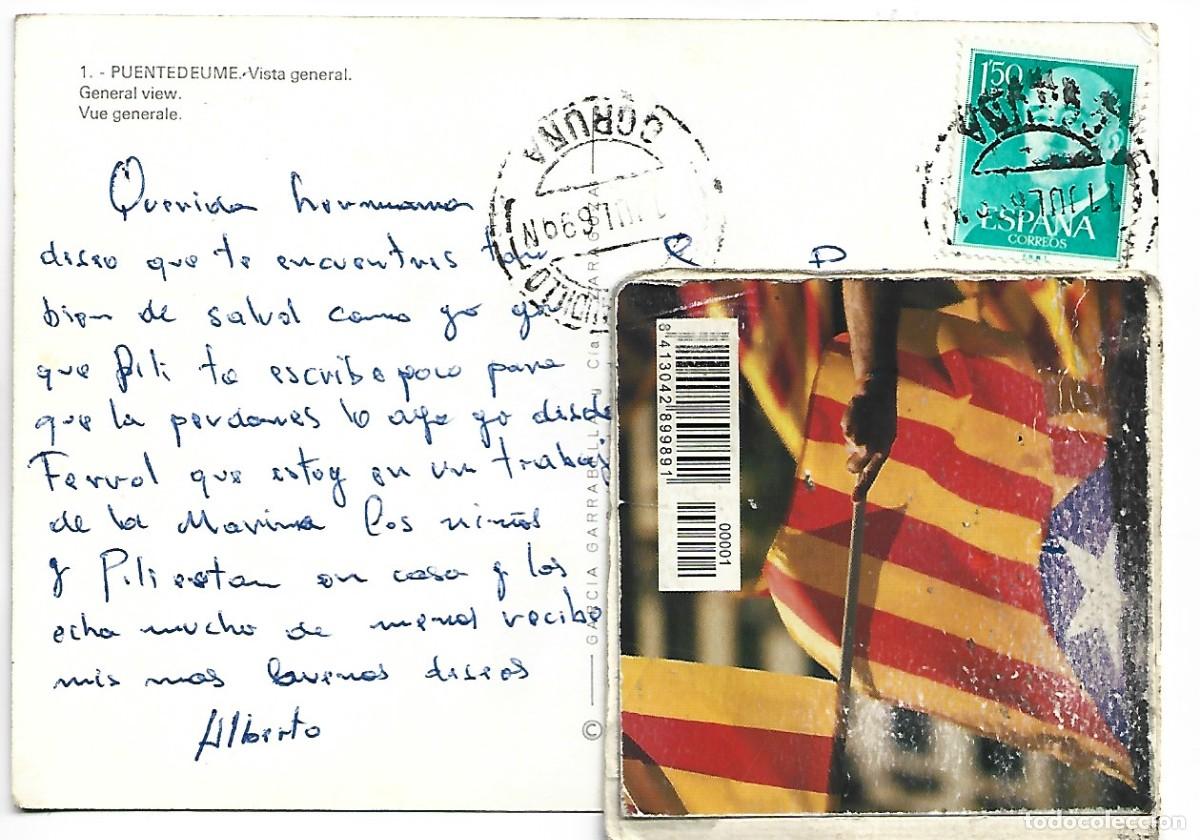 1. - PUENTEDEUME. Vista general.
General view.
Vue generale.
Querida hermana
diseo que te encuentres
bien de salud como yo ya
que Pili te escribe poco para
que la perdones lo ago yo disde
Ferrol que estoy en un trabaj
de la Marina los niños
y Pili estan en casa y los
echa mucho de menos recibe
mis mas buenos diseos
Alberto
CORUÑA
CORUÑA
1'50
ESPAÑA
CORREOS
© GARCIA GARRABELLA y Cia
8 413042 899891
00001
todocoleccion